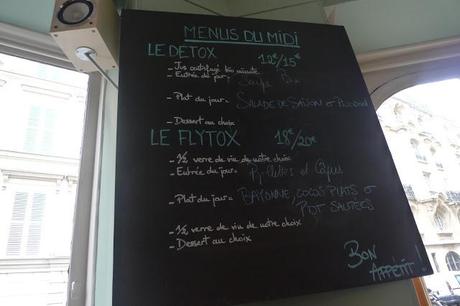 MENUS DU MIDI
LE DETOX 12€/15€
- Jus centrifugé bio minute
- Entrée du jour = Soupe Bio
- Plat du jour = SALADE DE SAISON et
- Dessert au choix
LE FLYTOX 18€/20€
- 1/2 verre de vin de votre choix
- Entrée du jour = Rillettes et
- Plat du jour = BAYONNE, COCOS PLATS et
PDT SAUTÉES
- 1/2 verre de vin de votre choix
- Dessert au choix
BON APPÉTIT!